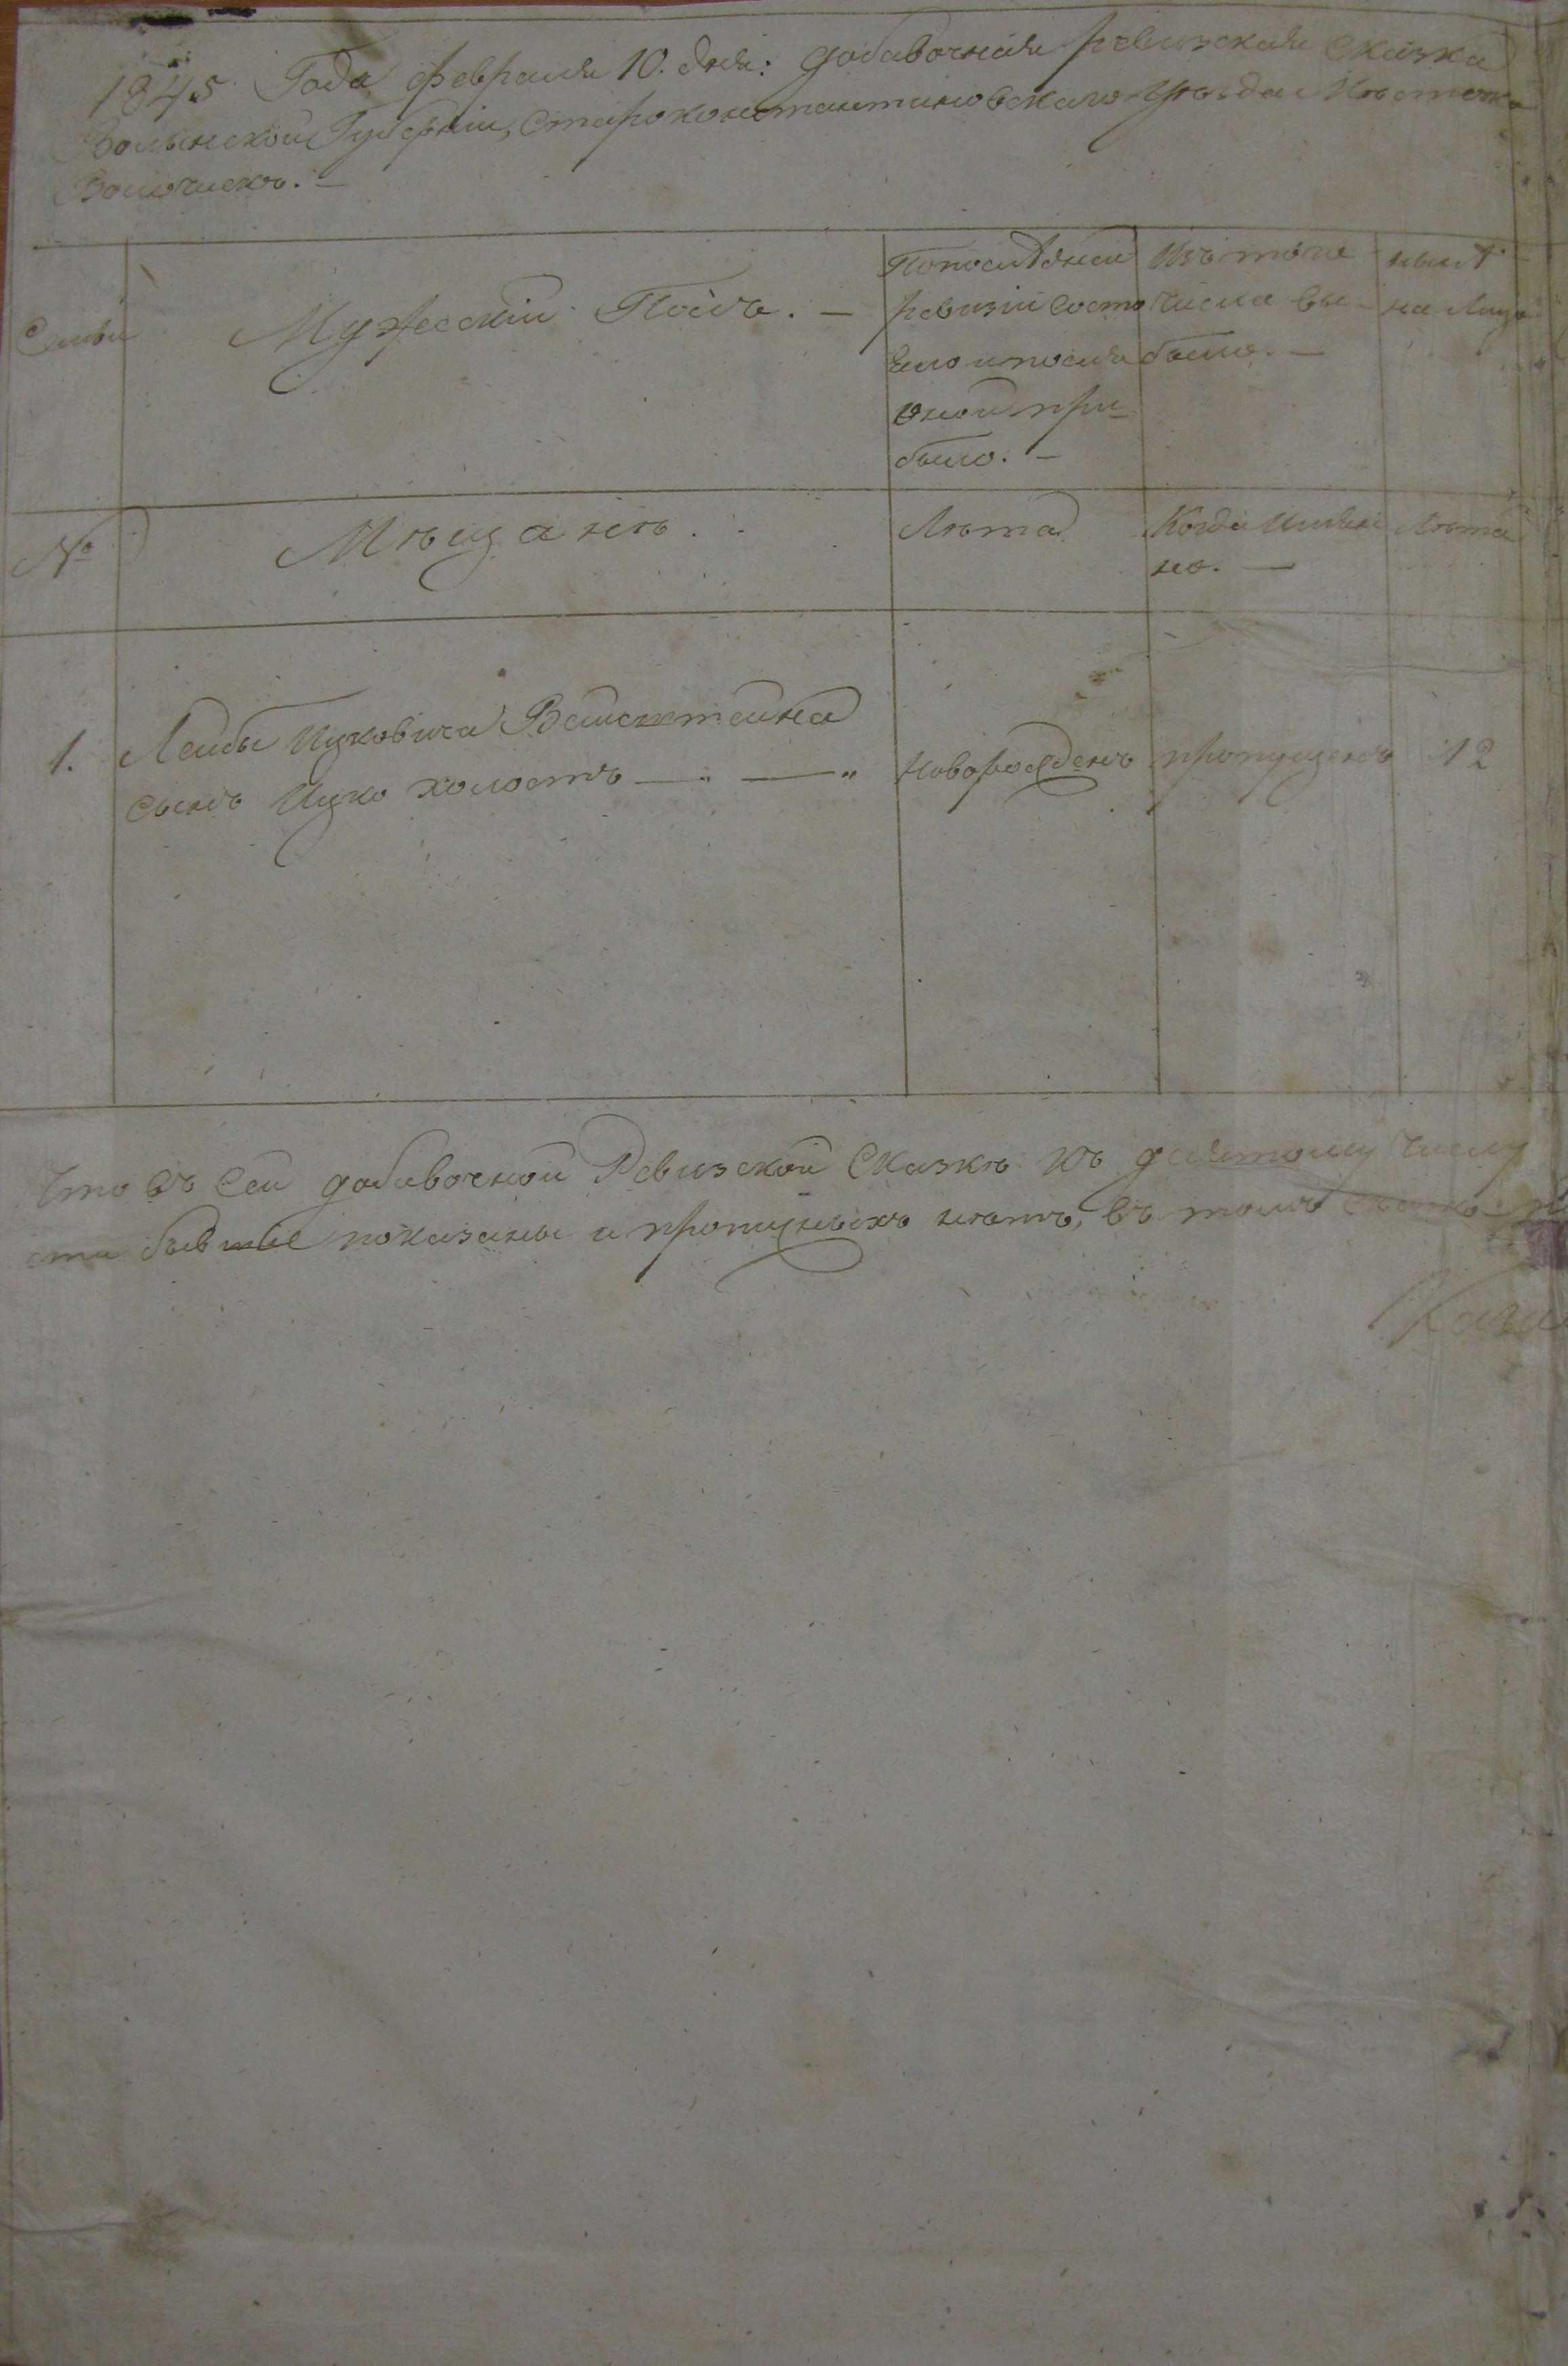 1845 Года февраля 10. дня: добавочная ревизская сказка
Волынской Губернiи, Староконстантиновскаго Уѣзда Мѣстечка
Волочискъ. —
Семьи
Мужескiй Полъ. —
По последней
ревизiи состо
яло и после
оной при-
было. —
Изъ того
числа вы-
было. —
ныне
на лицо
№
Мѣщанѣ.
Лѣта
Когда имян
но. —
Лѣта
1. Лейбы Ицковича Вайсштейна
сынъ Ицко холостъ — " — "
новорожденъ
пропущенъ
12
Что въ сей добавочной Ревизской Сказкѣ къ числу
бывшiе показаны и пропущныхъ нѣтъ, въ томъ